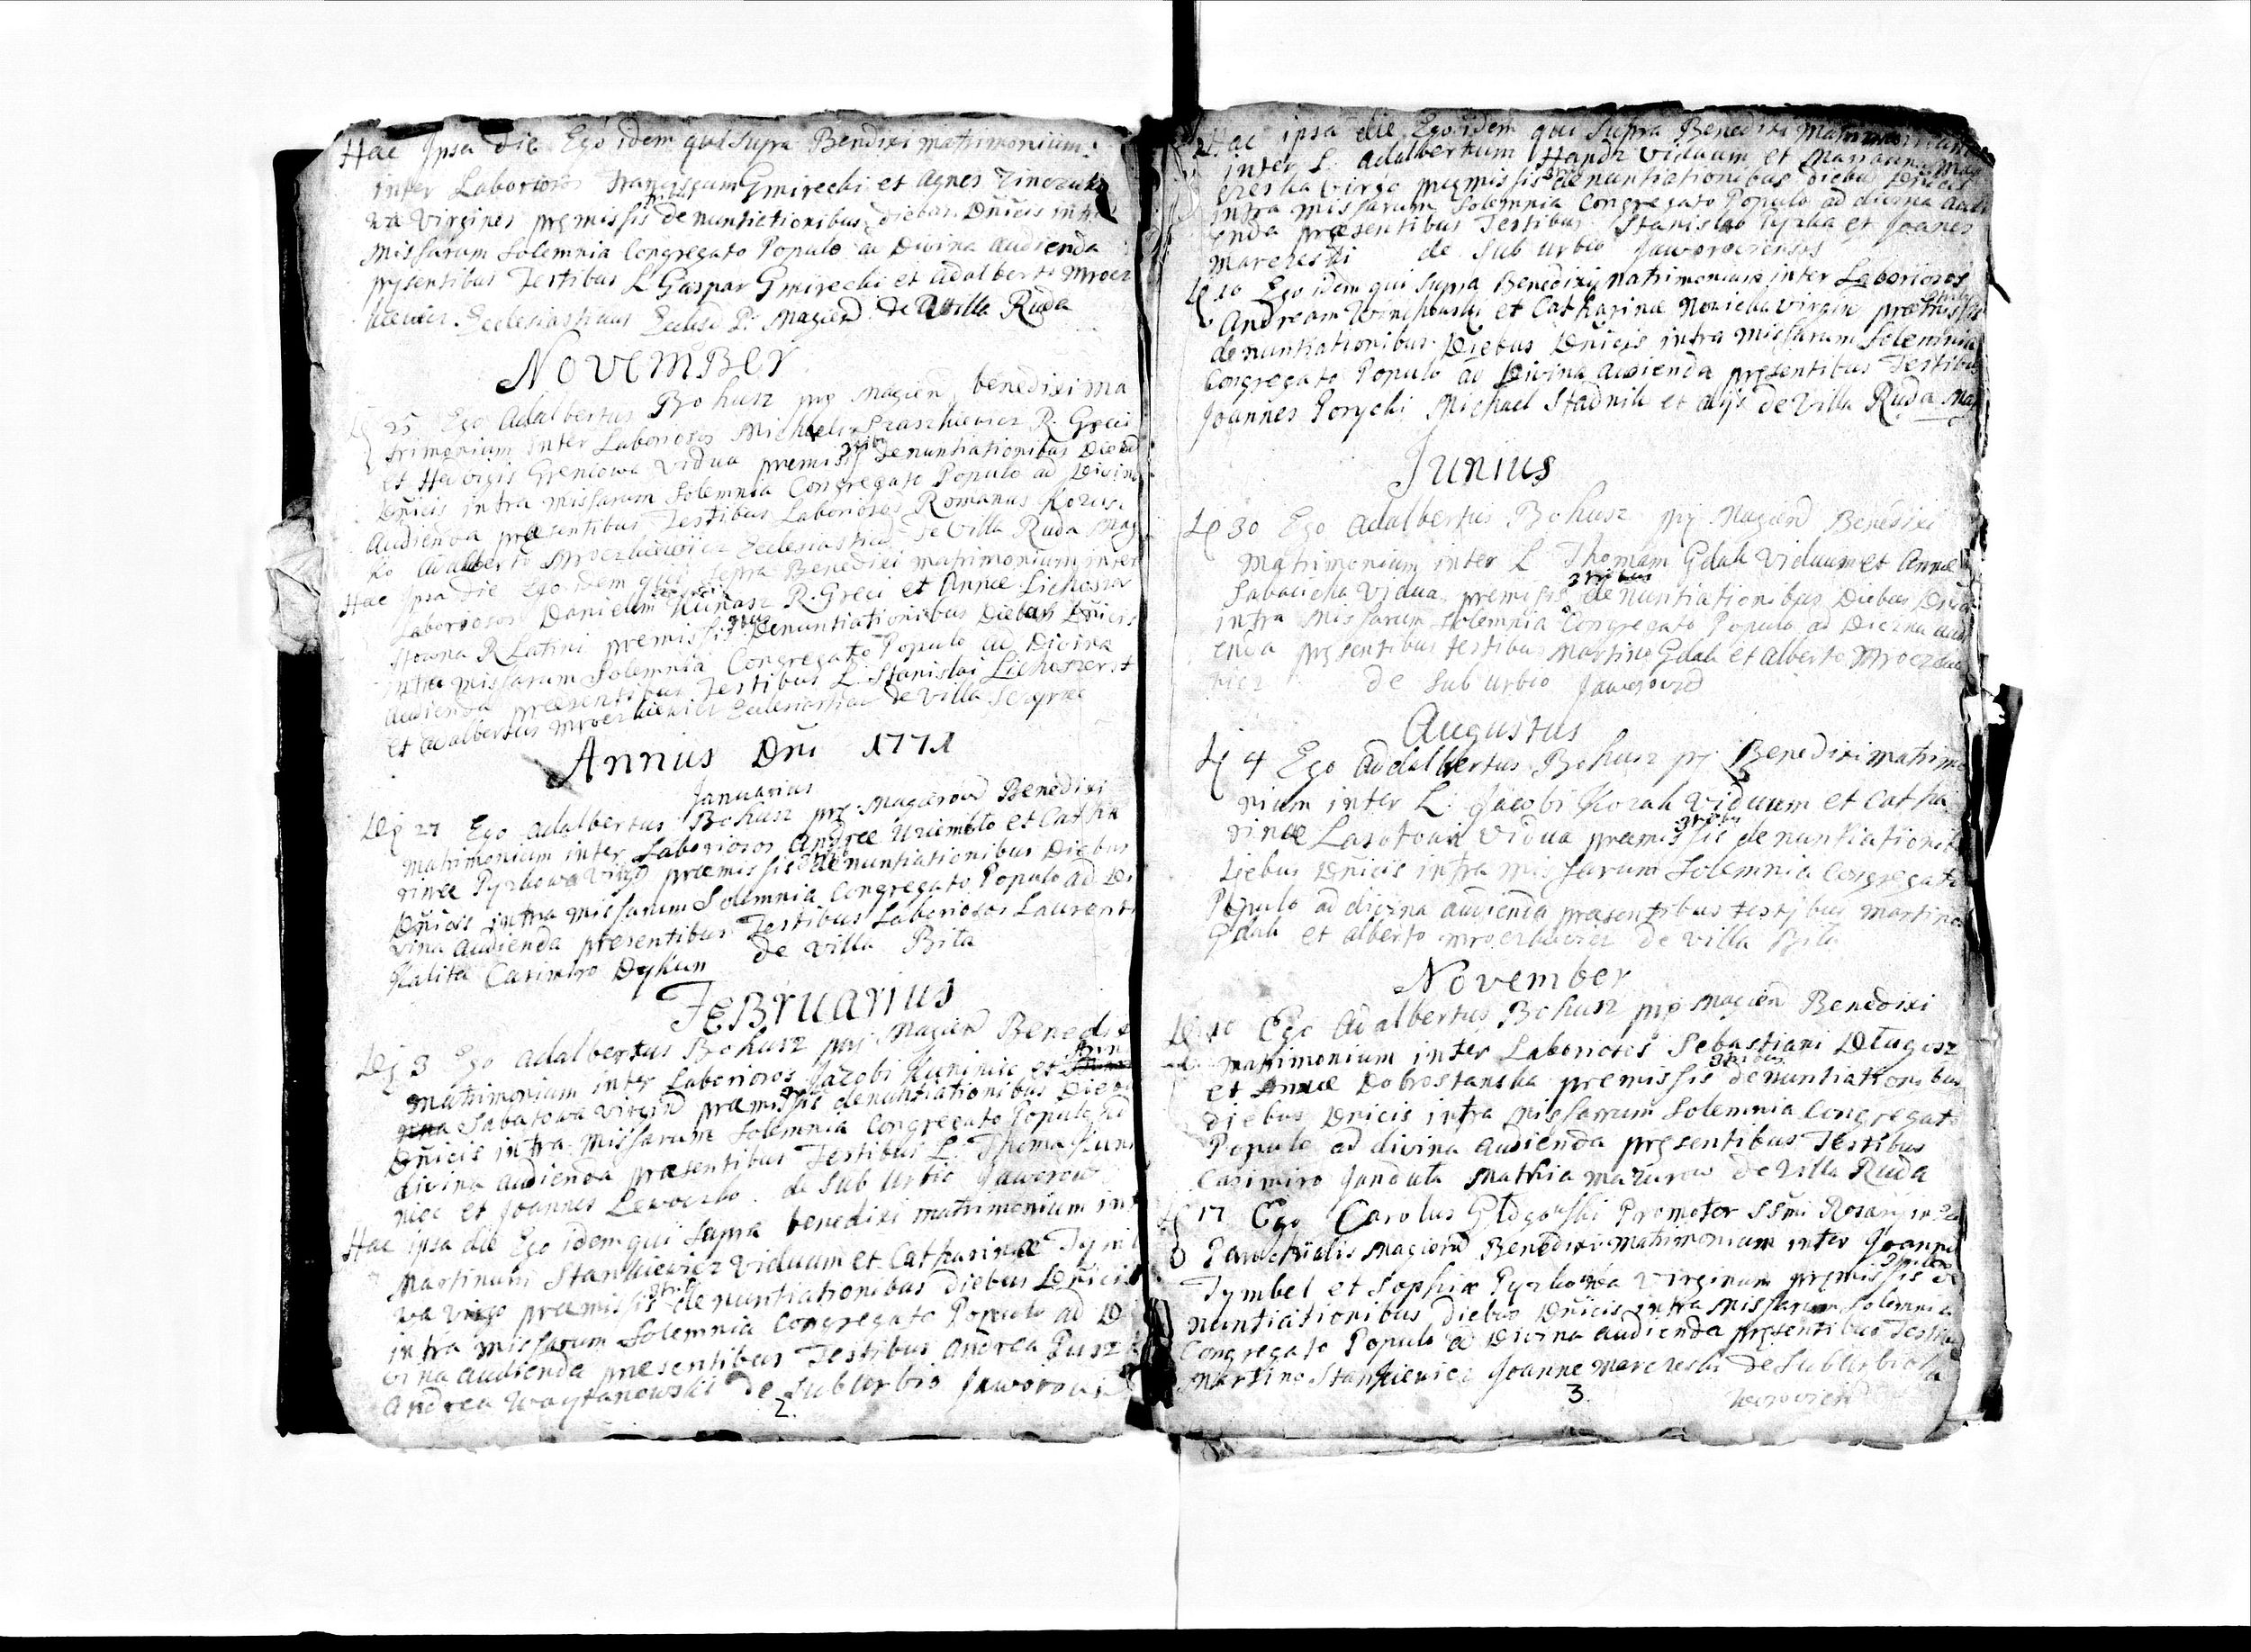 Hac Ipsa die Ego idem qui supra Bendixi matrimonium
inter Laboriosos Franciscum Gmirecki et Agnes
va Virgines premissis denuntiationibus diebus Dnicis intra
missarum Solemnia Congregato Populo ad Divina audienda
presentibus Testibus L Gaspar Gmirecki et adalberto Mrocz
kiewicz Ecclesiasticus Eccles P. Magierov de Villa Ruda
November
25 Ego Adalbertus Bohusz pp Magierov benedixi ma
trimonium inter Laboriosos Michaelis Praszkiewicz R. Greci
et Hedvigis Greniowa Vidua premissis 3tribus denuntiationibus Diebus
Dnicis intra missarum Solemnia Congregato Populo ad Divina
Audienda præsentibus Testibus Laboriosos Romanus Kozus
ko Adalberto Mroczkiewicz Ecclesiastico de Villa Ruda Mag
Hac Ipsa die Ego idem qui supra Benedixi matrimonium inter
Laboriosos Danielem Kunasz R. Greci et Annæ Lichosze
stowna R Latini premissis Denuntiationibus Diebus Dnicis
intra missarum Solemnia Congregato Populo ad Divina
audienda præsentibus Testibus L. Stanislai Lichoszerst
et adalbertus mroczkiewicz Ecclesiasticus de Villa
Annus Dni 1771
Januarius
27 Ego Adalbertus Bohusz pp Magierov Benedixi
matrimonium inter Laboriosos Andree Uziemblo et Catha
rinæ Pyzkowa Virgo præmissis denuntiationibus Diebus
Dnicis intra missarum Solemnia Congregato Populo ad Di
vina audienda presentibus Testibus Laboriosos Laurenti
Kalita Casimiro Dykun de Villa Bila
Februarius
3 Ego adalbertus Bohusz pp Magierov Benedixi
matrimonium inter Laboriosos Jacobi Kuniniec et
Sabatowa virgine præmissis denuntiationibus Diebus
Dnicis intra missarum Solemnia Congregato Populo ad
divina audienda præsentibus Testibus L. Thoma Kuni
niec et Joannes Lewoczko de Sub Urbio Jaworow
Hac ipsa die Ego idem qui Supra benedixi matrimonium int
Martinum Stankiewicz Viduum et Catharinæ Tym
va virgo præmissis 3tribus denuntiationibus diebus Dnicis
intra missarum Solemnia Congregato Populo ad D
vina audienda præsentibus Testibus Andrea
Andrea Woytanowski de Suburbio Jaworovi
2.
Hac ipsa die Ego idem qui Supra Benedixi Matrimonium
inter L. Adalbertum Handz viduum et Marianna Mar
czeska Virgo præmissis denuntiationibus diebus Dnicis
intra missarum Solemnia Congregato Populo ad divina audi
enda præsentibus Testibus Stanislao Pyzka et Joanes
Marczeski de Sub urbio Jaworoviensis
10 Ego idem qui Supra Benedixi Matrimonium inter Laboriosos
Andream Winchowski et Catharinæ Nowicka Virgin præmissis
denuntiationibus Diebus Dnicis intra missarum Solemnia
Congregato Populo ad Divina audienda presentibus Testibus
Joannes Porycki Michael Stadnik et alijs de Villa Ruda Mag
Junius
30 Ego Adalbertus Bohusz pp Magierov Benedixi
Matrimonium inter L Thomam Gdak Viduum et Annæ
Sabacicha Vidua premissis 3tribus denuntiationibus Diebus Dnici
intra Missarum Solemnia Congregato Populo ad Divina audi
enda presentibus testibus Martino Gdak et Alberto Mroczkie
wicz de Sub urbio Jaworovid
Augustus
4 Ego Adalbertus Bohusz pp Benedixi matrimo
nium inter L. Jacobi Kozak Viduum et Catha
rinæ Lasotowa Vidua præmissis 3tribus denuntiationib
Diebus Dnicis intra missarum Solemnia Congregato
Populo ad divina audienda præsentibus testibus Martino
Gdak et alberto mroczkiewicz de Villa Bila
November
10 Ego Adalbertus Bohusz pp Magierov Benedixi
Matrimonium inter Laboriosos Sebastiani Dlugosz
et Annæ Dobrostanska premissis 3tribus denuntiationibus
diebus Dnicis intra Missarum Solemnia Congregato
Populo ad divina audienda presentibus Testibus
Casimiro Janduła Mathia Mazurow de Villa Ruda
17 Ego Carolus Promotor SSmi Rosarij in
Parochialis Magierov Benedixi Matrimonium inter Joannem
Tymbel et Sophiæ Pyzkowna Virginum premissis 3tribus de
nuntiationibus diebus Dnicis intra Missarum Solemnia
Congregato Populo ad Divina audienda presentibus Testibus
Martino Stankiewicz Joanne Marczeski de Suburbio Ja
worovien
3.